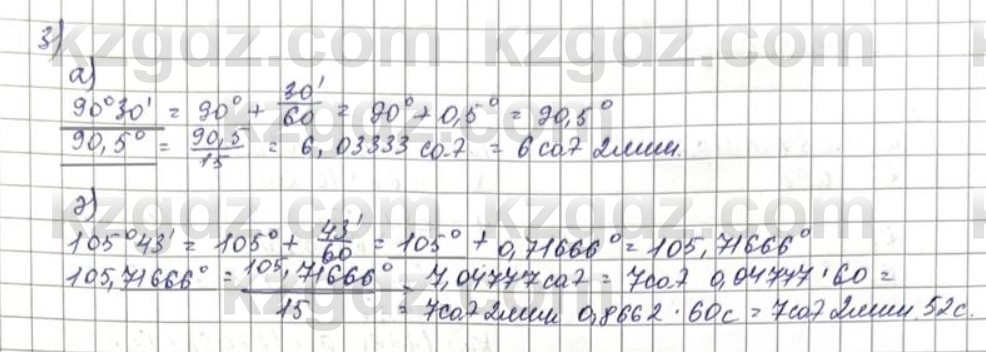 3)
а)
90°30' = 90° + 30'/60 = 90° + 0,5° = 90,5°
90,5° = 90,5/15 = 6,03333 сағ = 6 сағ 2мин.
ә)
105°43' = 105° + 43'/60 = 105° + 0,71666° = 105,71666°
105,71666° = 105,71666°/15 = 7,04777 сағ = 7 сағ 0,04777 · 60 =
= 7 сағ 2мин 0,8662 · 60с = 7 сағ 2мин. 52с.
kzgdz.com kzgdz.com kzgdz.com